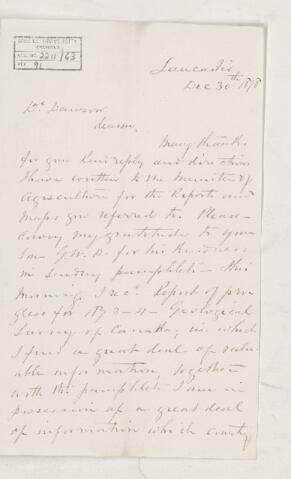 McGILL UNIVERSITY
ARCHIVES
ACC. NO. 2211/63
REF. 91
Lancaster
Dec 30th 1878
Dr Dawson
dear sir,
Many thanks
for your kind reply and directions
I have written to the Minister of
Agriculture for the Reports and
Maps you referred to. Please
convey my gratitude to your
son G.W.D. for his kindness
in sending pamphlets - this
morning I recd. Report of pro
gress for 1873-4 - Geological
Survey of Canada, in which
I find a great deal of valu
able information, together
with the pamphlets I am in
possession of a great deal
of information which